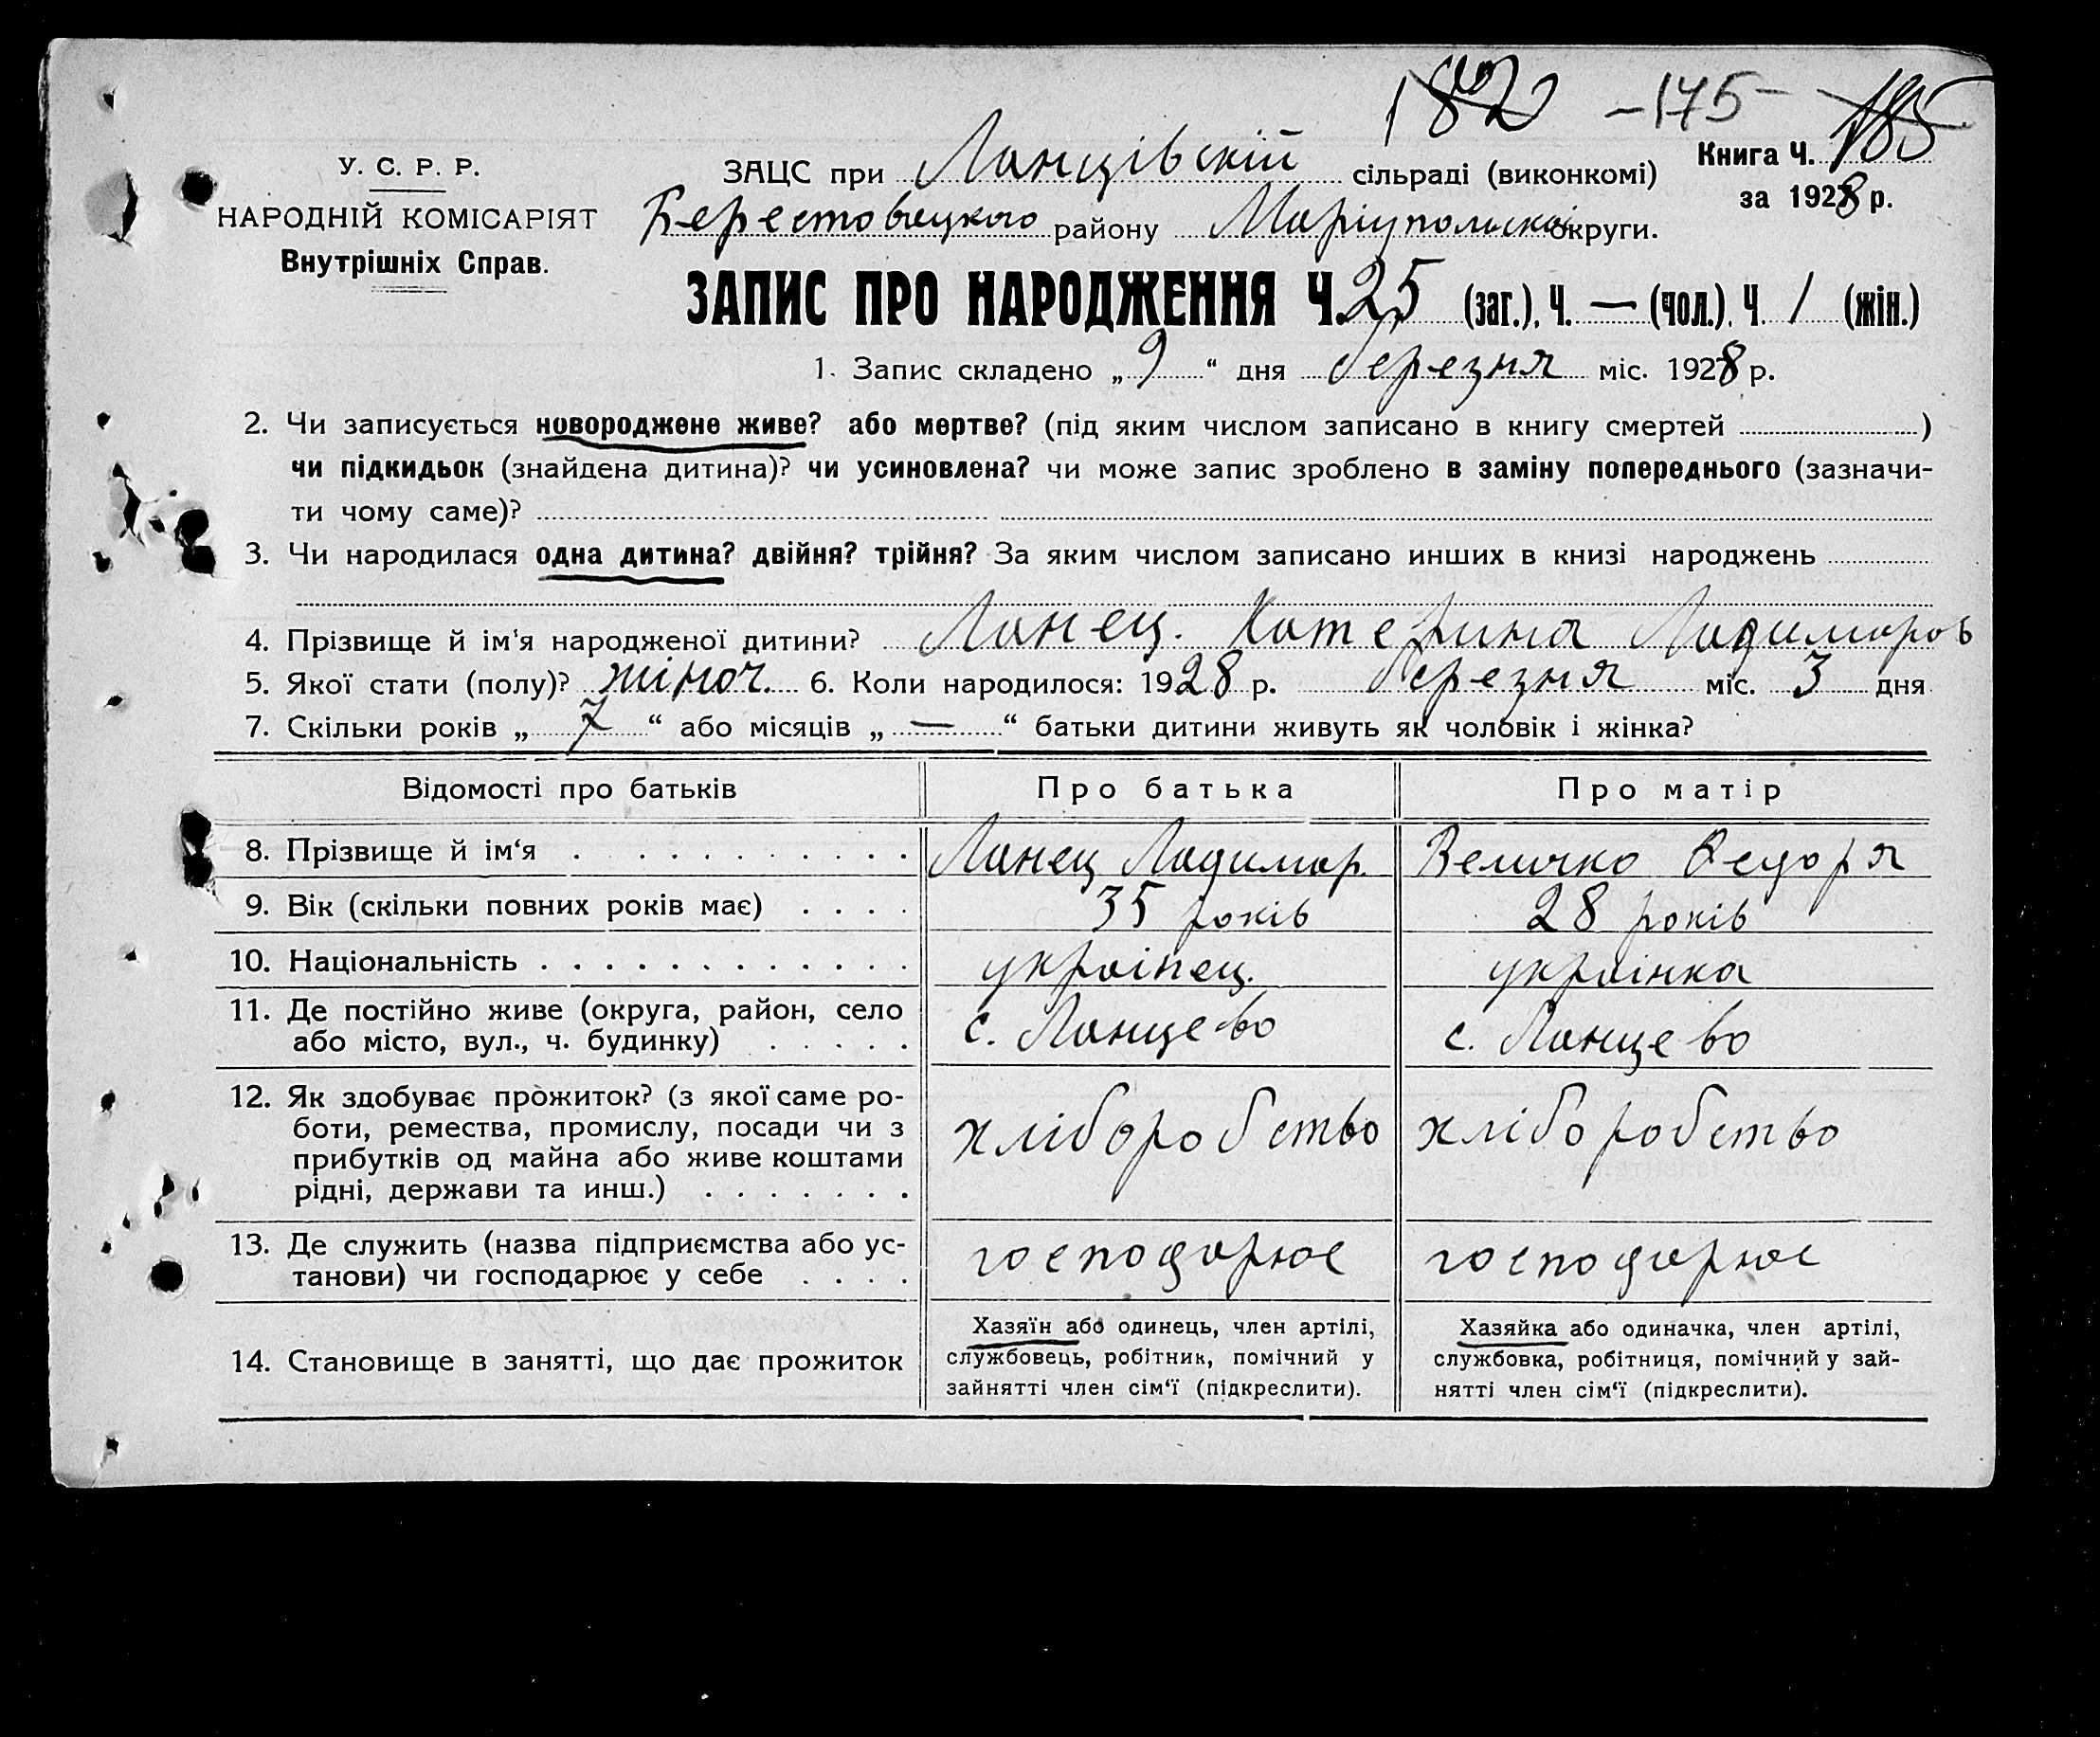 182 -175- 185
У. С. Р. Р.
НАРОДНІЙ КОМІСАРІЯТ
Внутрішніх Справ.
ЗАЦС при Ланцівскій сільраді (виконкомі)
Книга Ч. 185
за 1928 р.
Берестовецкого району Маріупольскої округи.
ЗАПИС ПРО НАРОДЖЕННЯ Ч. 25 (заг.), Ч. — (чол.), Ч. 1 (жін.)
1. Запис складено „ 9 “ дня березня міс. 1928 р.
2. Чи записується новороджене живе? або мертве? (під яким числом записано в книгу смертей )
чи підкидьок (знайдена дитина)? чи усиновлена? чи може запис зроблено в заміну попереднього (зазначи-
ти чому саме)?
3. Чи народилася одна дитина? двійня? трійня? За яким числом записано инших в книзі народжень
4. Прізвище й ім'я народженої дитини? Ланец. Катерина Ладимаров
5. Якої стати (полу)? жіноч. 6. Коли народилося: 1928 р. березня міс. 3 дня
7. Скільки років „ 7 “ або місяців „ — “ батьки дитини живуть як чоловік і жінка?
Відомості про батьків Про батька Про матір
8. Прізвище й ім‘я Ланец Ладимар. Величко Федоря
9. Вік (скільки повних років має) 35 років 28 років
10. Національність украінец. украінка
11. Де постійно живе (округа, район, село
або місто, вул., ч. будинку)
с. Ланцево с. Ланцево
12. Як здобуває прожиток? (з якої саме ро-
боти, ремества, промислу, посади чи з
прибутків од майна або живе коштами
рідні, держави та инш.)
хліборобство хліборобство
13. Де служить (назва підприємства або ус-
танови) чи господарює у себе
господарює господарює
14. Становище в занятті, що дає прожиток
Хазяїн або одинець, член артілі,
службовець, робітник, помічний у
зайнятті член сім‘ї (підкреслити).
Хазяйка або одиначка, член артілі,
службовка, робітниця, помічний у зай-
нятті член сім‘ї (підкреслити).